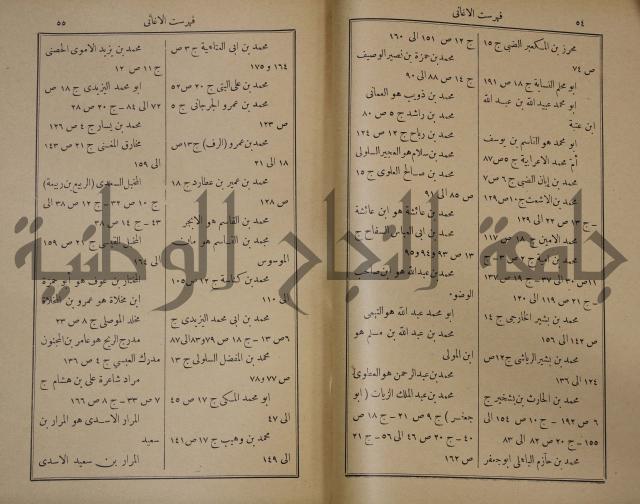 ٥٤
فهرست الاغانى
محرز بن المكعبر الضبى ج ١٥
ص ٧٤
ابو محلم النسابة ج ١٨ ص ١٩١
ابو محمد عبيد الله بن عبد الله
ابن عتبة
ابو محمد هو القاسم بن يوسف
أم محمد الاعرابية ج ٥ ص ٨٧
محمد بن إبان الضبى ج ٦ ص ٧
محمد بن الاشعث ج ١٠ ص ١٢٩
- ج ١٣ ص ٢٢ الى ١٢٩
محمد الامين ج ١٨ ص ١١٧
محمد بن امية ج
١١ ص ٣٠ الى ٣٧ - ج ١٩ ص ١٣٧
- ج ٢١ ص ١١٩ الى ١٢٠
محمد بن بشير الخارجى ج ١٤
ص ١٤٢ الى ١٥٦
محمد بن بشير الرياشى ج ١٢ ص
١٢٤ الى ١٣٦
محمد بن الحارث بن بشخير ج
٦ ص ١٩٢ - ج ١٠ ص ١٥٤ الى
١٥٥ - ج ٢٠ ص ٨٢ الى ٨٣
محمد بن حازم الباهلى ابو جعفر
ج ١٢ ص ١٥١ الى ١٦٠
محمد بن حمزة بن نصير الوصيف
ج ١٤ ص ٨٨ الى ٩٠
محمد بن ذويب هو العمانى
محمد بن راشد ج ٥ ص ٨٠
محمد بن رياح ج ١٢ ص ١٢٤
محمد بن سلام هو العجير السلولى
محمد بن صالح العلوى ج ١٥
ص ٨٥ الى ٩١
محمد بن عائشة هو ابن عائشة
محمد بن ابى العباس السفاح ج
١٣ ص ٩٣ و ٩٤ و ٩٥
محمد بن عبد الله هو ابن صاحب
الوضوء
ابو محمد عبد الله هو التيمى
محمد بن عبد الله بن مسلم هو
ابن المولى
محمد بن عبد الرحمن هو العطوى
محمد بن عبد الملك الزيات (ابو
جعفر) ج ٩ ص ٢١ - ج ١٨ ص
٤٠ - ج ٢٠ ص ٤٦ الى ٥٦ - ج ٢١
ص ١٦٢
فهرست الاغانى
٥٥
محمد بن ابى العتاهية ج ٣ ص
١٦٤ و ١٧٥
محمد بن على البنى ج ٢٠ ص ٥٢
محمد بن عمرو الجرجانى ج ٥
ص ١٢٣
محمد بن عمرو (الرف) ج ١٣ ص
١٨ الى ٢١
محمد بن عمير بن عطارد ج ١٨
ص ١٢٨
محمد بن القاسم هو الابجر
محمد بن القاسم هو مانى
الموسوس
محمد بن كناسة ج ١٢ ص ١٠٥
الى ١١٠
محمد بن ابى محمد اليزيدى ج
٦ ص ١٣ - ج ١٨ ص ٧٩ و ٨٣ الى ٨٧
محمد بن المفضل السلولى ج ١٣
ص ٧٧ و ٧٨
ابو محمد المسكى ج ١٧ ص ٤٥
الى ٤٧
محمد بن وهيب ج ١٧ ص ١٤١
الى ١٤٩
محمد بن يزيد الاموى الحصنى
ج ١١ ص ١٢
ابو محمد اليزيدى ج ١٨ ص
٧٢ الى ٨٤ - ج ٢٠ ص ٢٨
محمد بن يسار ج ٤ ص ١٢٦
مخارق المغنى ج ٢١ ص ١٤٣
الى ١٥٩
المخبل السعدى (الربيع بن ربيعة)
ج ١٠ ص ٣٢ - ج ١٢ ص ٣٨ الى
٤٣ - ج ١٤ ص ٣٨
المخبل القيسى ج ٢١ ص ١٥٩
الى ١٦٤
المختار بن عوف هو ابو حمزة
ابن مخلاة هو عمرو بن المخلاة
مخلد الموصلى ج ٨ ص ٢٣
مدرج الريح هو عامر بن المجنون
مدرك العبسى ج ٤ ص ١٣٦
مراد شاعرة على بن هشام ج
٧ ص ٣٣ - ج ٨ ص ١٦٦
المرار الاسدى هو المرار بن
سعيد
المرار بن سعيد الاسدى
جامعة النجاح الوطنية